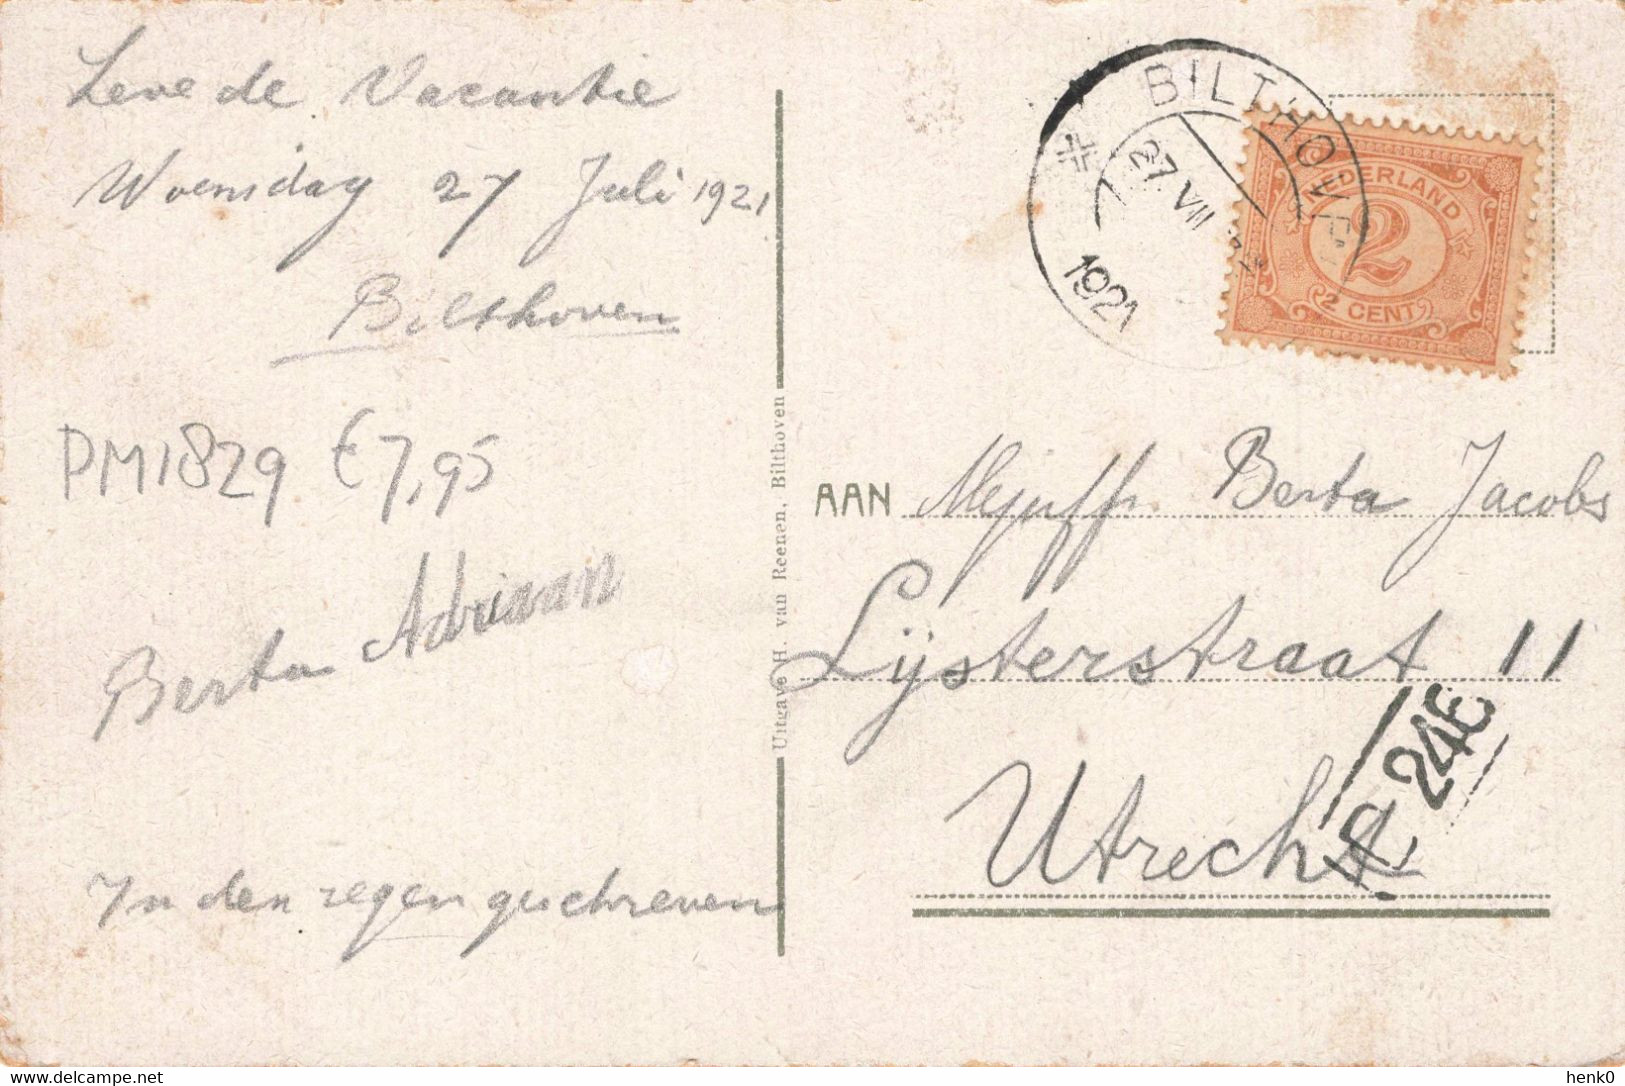 Leve de Vacantie
Woensdag 27 Juli 1921
Bilthoven
PM1829 €7,95
Berta Adriaan
In den regen geschreven
Uitgave H. van Reenen, Bilthoven
BILTHOVEN
27 VII
1921
NEDERLAND
2
2 CENT
AAN Mejuffr Berta Jacobs
Lijsterstraat 11
Utrecht
24E
delcampe.net
henk0